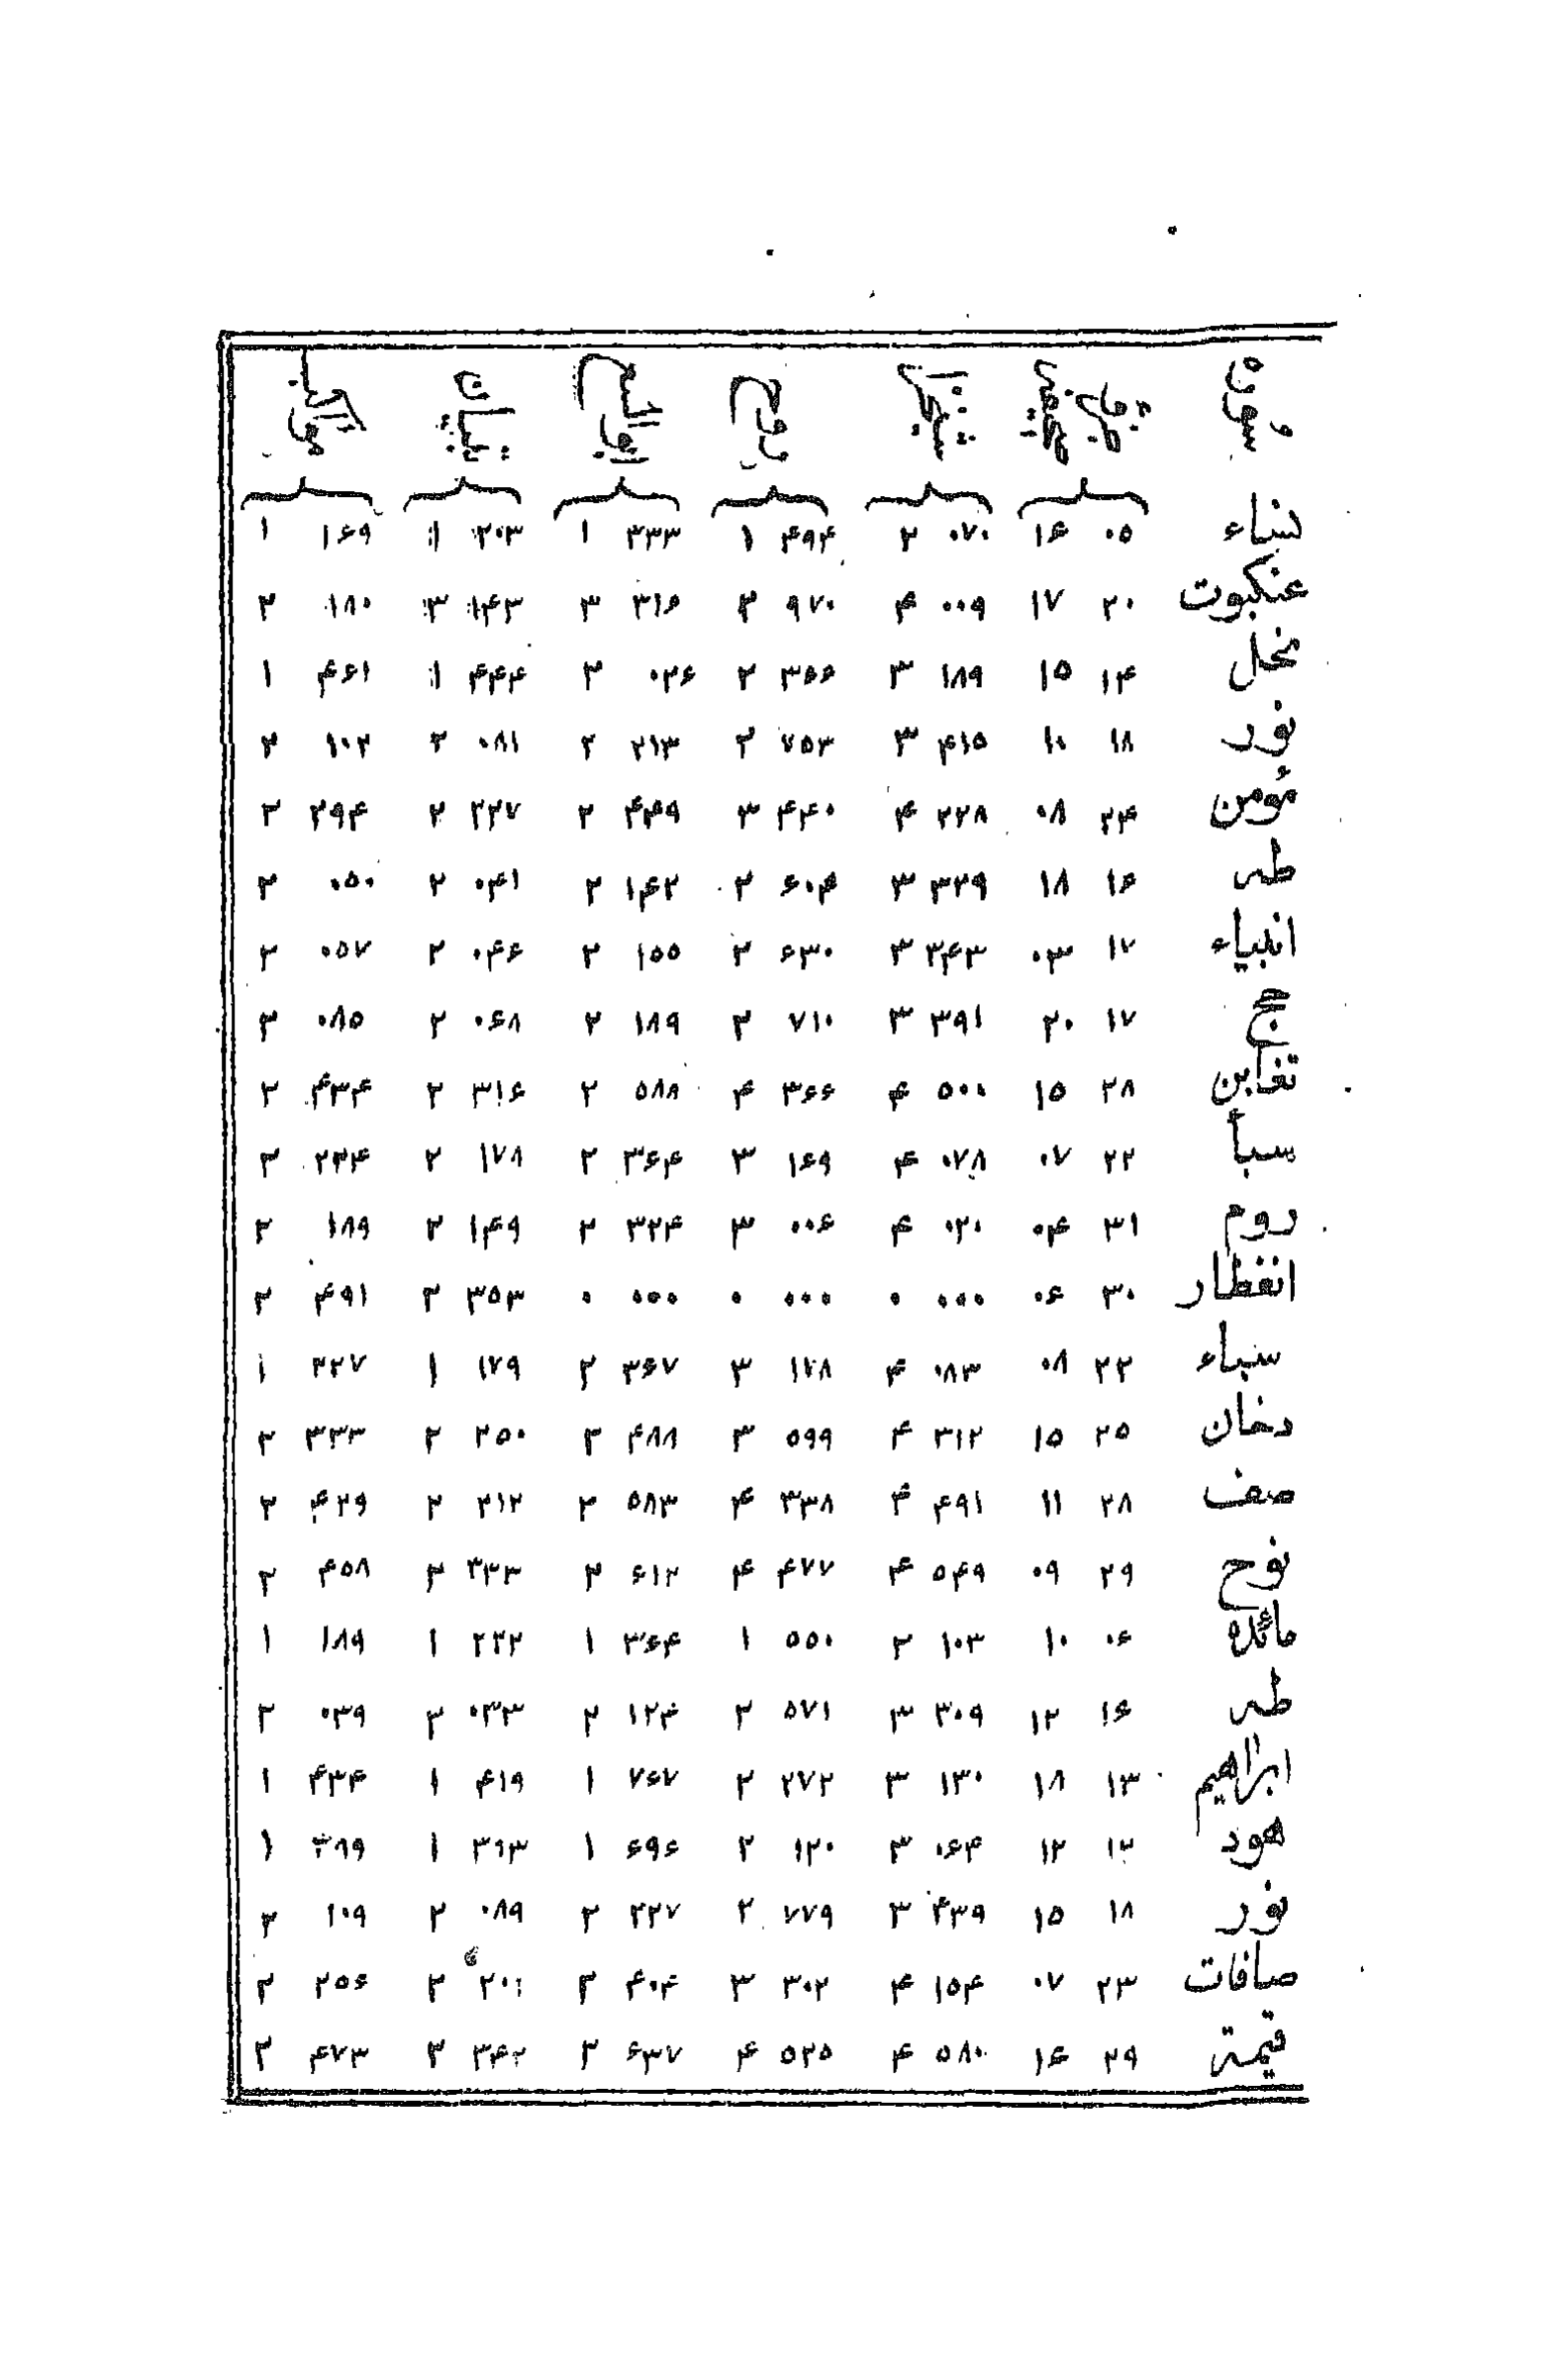 نساء ۰۵ ۱۶ ۰۷۰ ۲ ۴۹۴ ۱ ۳۳۳ ۱ ۲۰۳ ۱ ۱۶۹ ۱
عنکبوت ۲۰ ۱۷ ۰۰۹ ۴ ۹۷۰ ۲ ۳۱۶ ۳ ۱۴۳ ۳ ۱۸۰ ۲
نحل ۱۴ ۱۵ ۱۸۹ ۳ ۳۶۶ ۲ ۰۲۶ ۲ ۴۴۴ ۱ ۴۶۱ ۱
نور ۱۸ ۱۰ ۴۱۵ ۳ ۷۵۳ ۲ ۲۱۳ ۲ ۰۸۱ ۲ ۱۰۲ ۲
مؤمن ۲۴ ۰۸ ۲۲۸ ۴ ۴۴۰ ۳ ۴۴۹ ۲ ۲۲۷ ۲ ۲۹۴ ۲
طه ۱۶ ۱۸ ۳۲۹ ۳ ۶۰۴ ۲ ۱۴۲ ۲ ۰۴۱ ۲ ۰۵۰ ۲
انبیاء ۱۷ ۰۳ ۳۴۳ ۳ ۶۳۰ ۲ ۱۵۵ ۲ ۰۴۶ ۲ ۰۵۷ ۲
حج ۱۷ ۲۰ ۳۹۱ ۳ ۷۱۰ ۲ ۱۸۹ ۲ ۰۶۸ ۲ ۰۸۵ ۲
تغابن ۲۸ ۱۵ ۵۰۰ ۴ ۳۶۶ ۴ ۵۸۸ ۲ ۳۱۶ ۲ ۴۳۴ ۲
سبأ ۲۲ ۰۷ ۰۷۸ ۴ ۱۶۹ ۳ ۳۶۴ ۲ ۱۷۸ ۲ ۲۲۴ ۲
روم ۳۱ ۰۴ ۰۲۰ ۴ ۰۰۶ ۳ ۳۲۴ ۲ ۱۴۹ ۲ ۱۸۹ ۲
انفطار ۳۰ ۰۶ ۰۰۰ ۰ ۰۰۰ ۰ ۰۰۰ ۰ ۳۵۳ ۲ ۴۹۱ ۲
سباء ۲۲ ۰۸ ۰۸۳ ۴ ۱۷۸ ۳ ۳۶۷ ۲ ۱۷۹ ۱ ۲۲۷ ۱
دخان ۲۵ ۱۵ ۳۱۲ ۴ ۵۹۹ ۳ ۴۸۸ ۲ ۲۵۰ ۲ ۳۳۳ ۲
صف ۲۸ ۱۱ ۴۹۱ ۴ ۳۳۸ ۴ ۵۸۳ ۲ ۳۱۲ ۲ ۴۲۹ ۲
نوح ۲۹ ۰۹ ۵۴۹ ۴ ۴۷۷ ۴ ۶۱۲ ۲ ۳۳۳ ۲ ۴۵۸ ۲
مائده ۰۶ ۱۰ ۱۰۳ ۲ ۵۵۰ ۱ ۳۶۴ ۱ ۲۲۲ ۱ ۱۸۹ ۱
طه ۱۶ ۱۲ ۳۰۹ ۳ ۵۷۱ ۲ ۱۲۴ ۲ ۰۳۳ ۲ ۰۳۹ ۲
ابراهیم ۱۳ ۱۸ ۱۳۰ ۳ ۲۷۲ ۲ ۷۶۷ ۱ ۴۱۹ ۱ ۴۳۴ ۱
هود ۱۲ ۱۲ ۰۶۴ ۳ ۱۲۰ ۲ ۶۹۶ ۱ ۳۹۳ ۱ ۳۸۹ ۱
نور ۱۸ ۱۵ ۴۳۹ ۳ ۷۷۹ ۲ ۲۲۷ ۲ ۰۸۹ ۲ ۱۰۹ ۲
صافات ۲۳ ۰۷ ۱۵۴ ۴ ۳۰۲ ۳ ۴۰۴ ۲ ۲۰۱ ۲ ۲۵۶ ۲
قیمة ۲۹ ۱۶ ۵۸۰ ۴ ۵۲۵ ۴ ۶۳۷ ۲ ۳۴۲ ۲ ۴۷۳ ۲